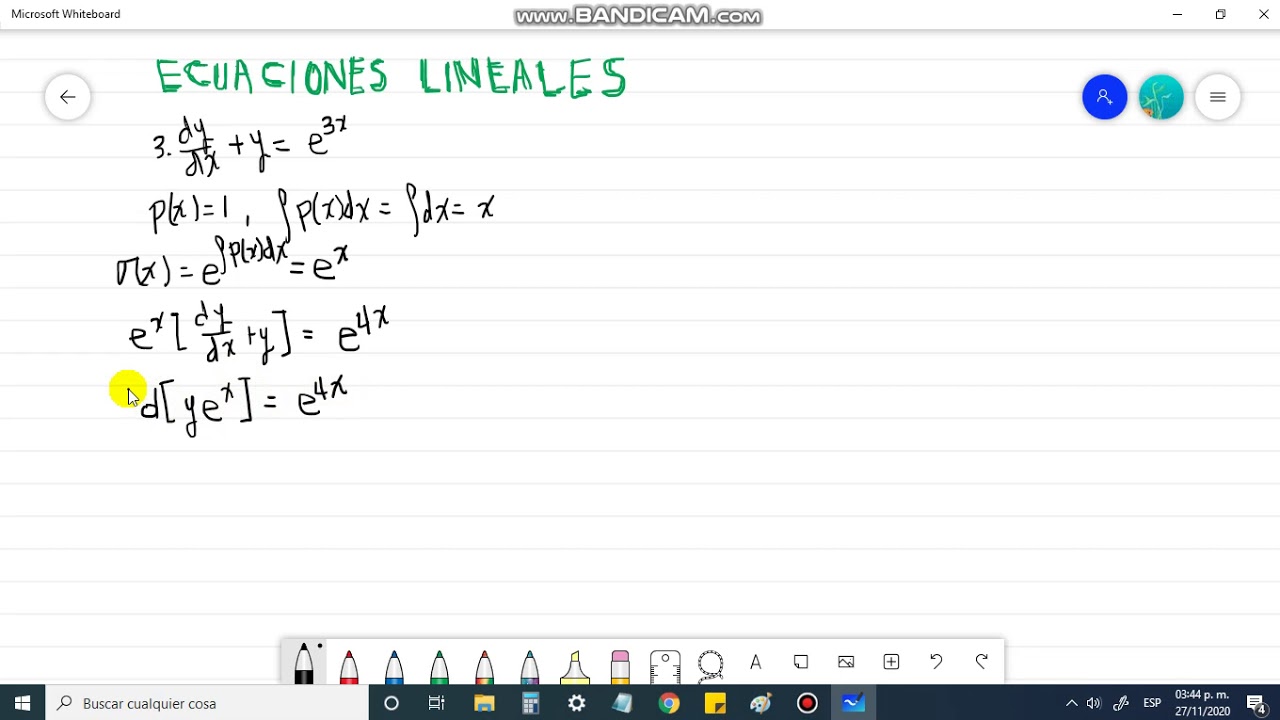 Microsoft Whiteboard
www.BANDICAM.com
ECUACIONES LINEALES
3. dy/dx + y = e^3x
p(x) = 1, ∫p(x)dx = ∫dx = x
σ(x) = e^∫p(x)dx = e^x
e^x [dy/dx + y] = e^4x
d[ye^x] = e^4x
A
Buscar cualquier cosa
ESP
03:44 p. m.
27/11/2020
4